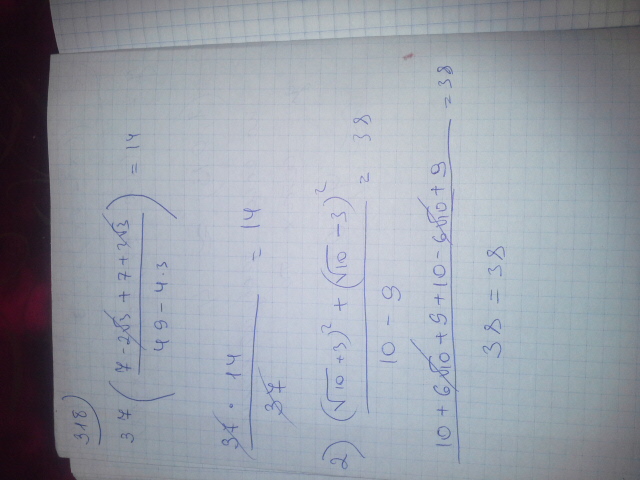 318)
37 ( (7 - 2√3 + 7 + 2√3) / (49 - 4·3) ) = 14
(37 · 14) / 37 = 14
2) ((√10 + 3)² + (√10 - 3)²) / (10 - 9) = 38
10 + 6√10 + 9 + 10 - 6√10 + 9 = 38
38 = 38